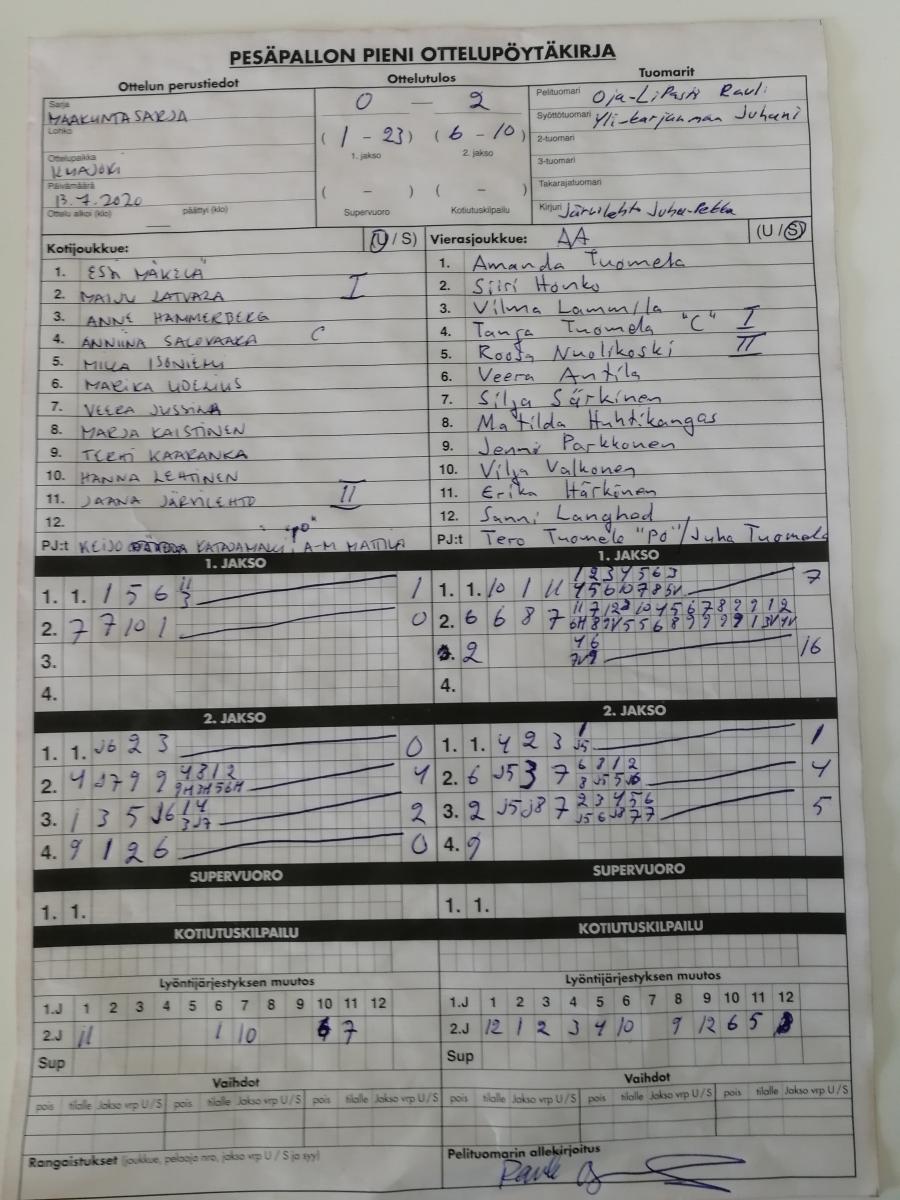 PESÄPALLON PIENI OTTELUPÖYTÄKIRJA
Ottelun perustiedot
Sarja
MAAKUNTASARJA
Lohko
Ottelupaikka
Päivämäärä
13.7.2020
Ottelu alkoi (klo) päättyi (klo)
Ottelutulos
0 — 2
( 1 - 23 ) ( 6 - 10 )
1. jakso 2. jakso
( - ) ( - )
Supervuoro Kotiutuskilpailu
Tuomarit
Pelituomari Oja-Lipasti Rauli
Syöttötuomari Yli-karjanmaa Juhani
2-tuomari
3-tuomari
Takarajatuomari
Kirjuri Järvilehto Juha-Pekka
Kotijoukkue: (U / S)
1. ESA MÄKELÄ
2. MAIJU LATVALA I
3. ANNE HAMMERBERG
4. ANNIINA SALOVAARA C
5. MILLA ISONIEMI
6. MARIKA UDELIUS
7. VEERA JUSSILA
8. MARJA KAISTINEN
9. TERHI KAARANKA
10. HANNA LEHTINEN
11. JAANA JÄRVILEHTO II
12.
PJ:t KEIJO KATAJAMÄKI "PO", A-M MATTILA
Vierasjoukkue: AA (U / S)
1. Amanda Tuomela
2. Siiri Honko
3. Vilma Lammila
4. Tanja Tuomela "C" I
5. Roosa Nuolikoski II
6. Veera Antila
7. Silja Särkinen
8. Matilda Huhtikangas
9. Jenni Parkkonen
10. Vilja Valkonen
11. Erika Härkinen
12. Sanni Langhed
PJ:t Tero Tuomela "PO" / Juha Tuomela
1. JAKSO
1. 1. 1 5 6 11 1
3
2. 7 7 10 1 0
3.
4.
1. JAKSO
1 2 3 4 5 6 3
1. 1. 10 1 11 4 5 6 10 7 8 7
2. 6 6 8 7
3. 2 4 6 16
4.
2. JAKSO
1. 1. J6 2 3 0
2. 4 J7 9 9 4 8 1 2 4
3. 1 3 5 J6 1 4 2
3 J7
4. 9 1 2 6 0
2. JAKSO
1. 1. 4 2 3 1 1
J5
2. 6 J5 3 7 6 8 1 2 4
3. 2 J5 J8 7 2 3 4 5 6 5
J5 6 J8 7 7
4. 9
SUPERVUORO
1. 1.
SUPERVUORO
1. 1.
KOTIUTUSKILPAILU
KOTIUTUSKILPAILU
Lyöntijärjestyksen muutos
1.J 1 2 3 4 5 6 7 8 9 10 11 12
2.J 11 1 10 6 7
Sup
Lyöntijärjestyksen muutos
1.J 1 2 3 4 5 6 7 8 9 10 11 12
2.J 12 1 2 3 4 10 9 12 6 5
Sup
Vaihdot
pois tilalle Jakso vrp U / S pois tilalle Jakso vrp U / S pois tilalle Jakso vrp U / S
Vaihdot
pois tilalle Jakso vrp U / S pois tilalle Jakso vrp U / S pois tilalle Jakso vrp U / S
Rangaistukset (joukkue, pelaaja nro, jakso vrp U / S ja syy)
Pelituomarin allekirjoitus